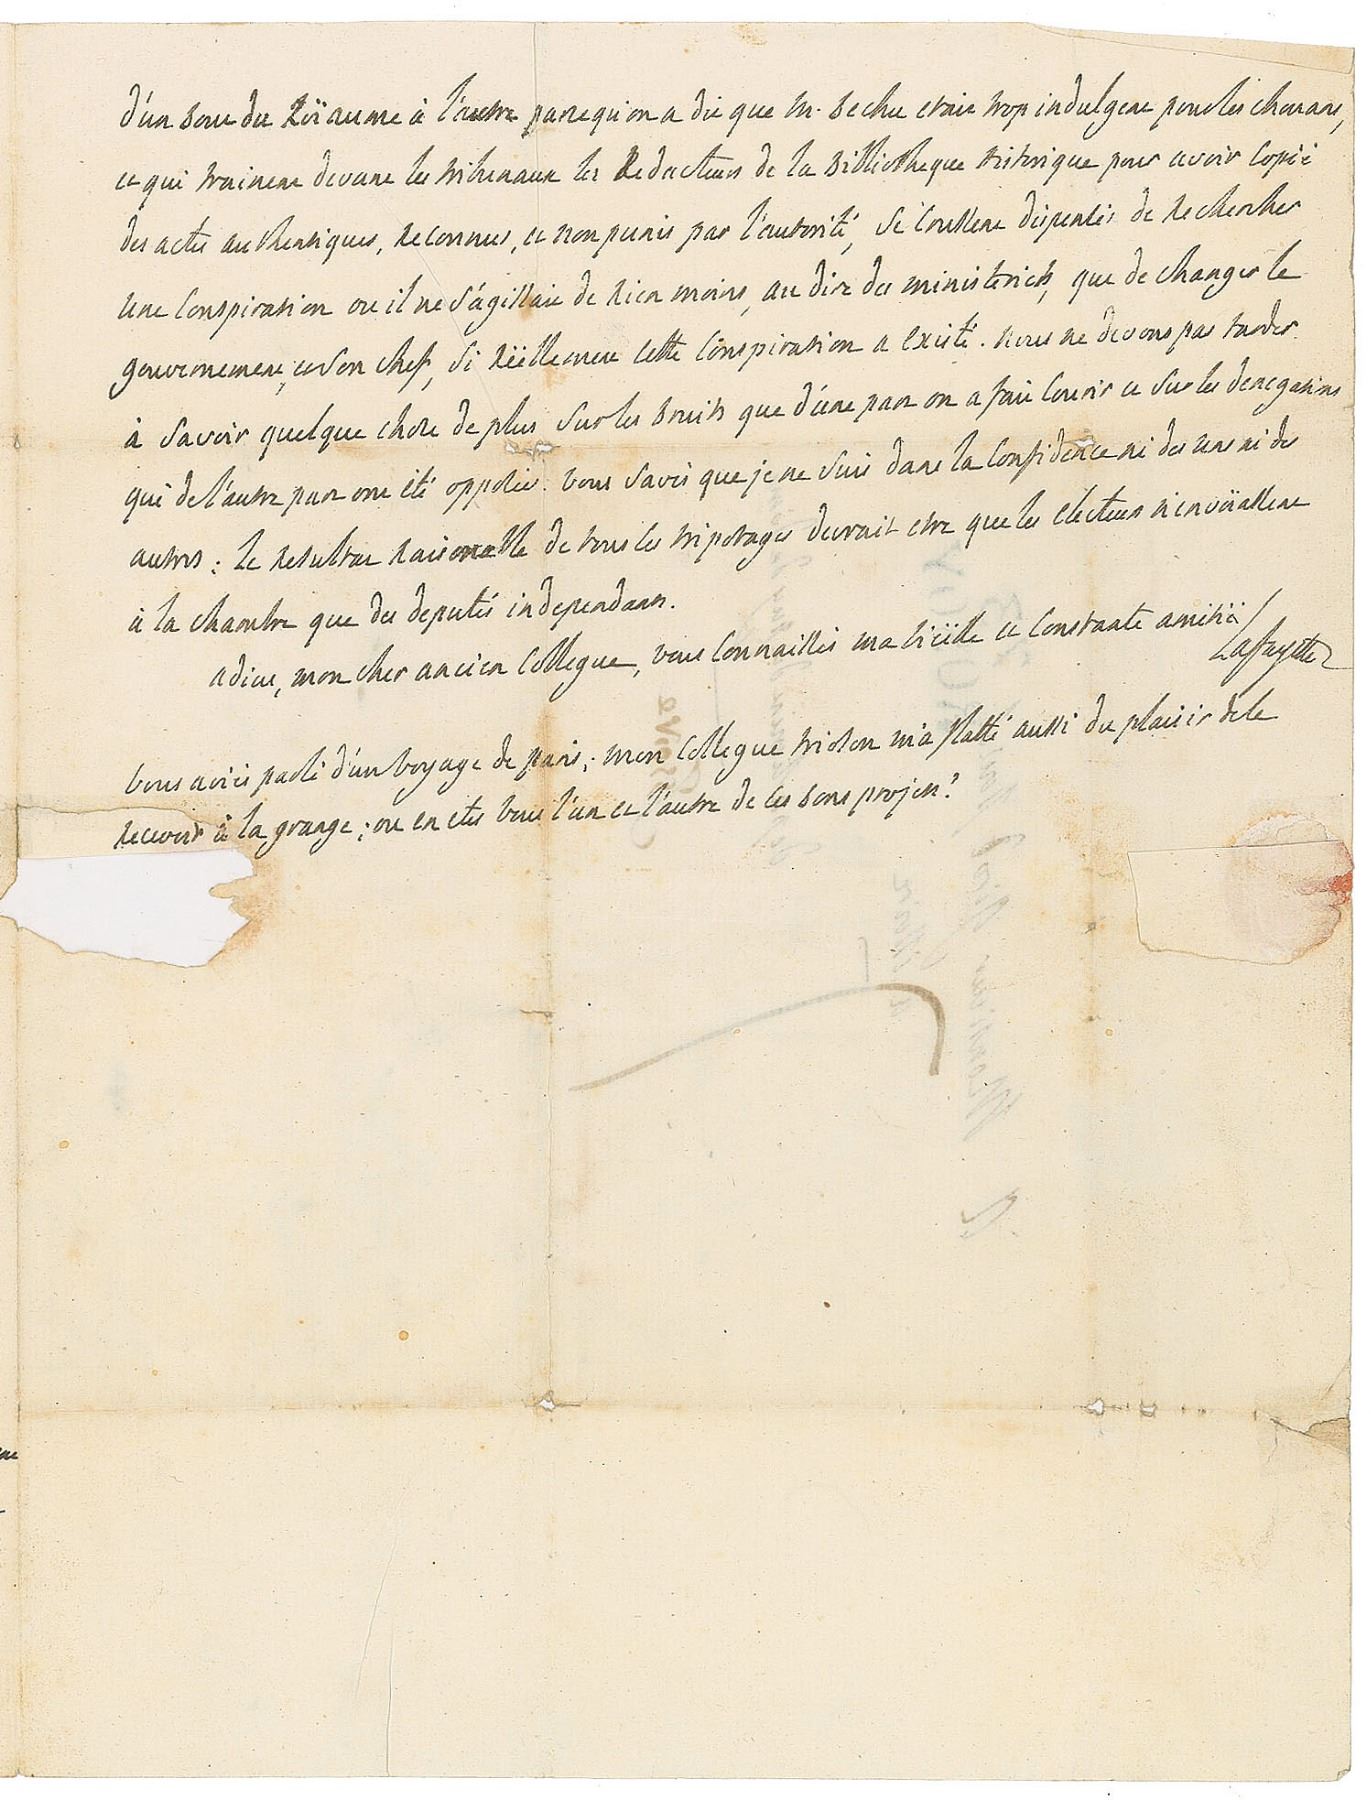 d'un bout du Roïaume à l'autre parcequ'on a dit que M. Bechu etait trop indulgent pour les chouans,
et qui trainent devant les tribunaux les Redacteurs de la Bibliotheque historique pour avoir copié
des actes authentiques, reconnus, et non punis par l'autorité, se croyent dispensés de rechercher
une conspiration ou il ne s'agissait de rien moins, au dire des ministeriels, que de changer le
gouvernement, et son chef, si réëllement cette conspiration a existé. nous ne devons pas tarder
à savoir quelque chose de plus sur les bruits que d'une part on a fait courir et sur les denegations
qui de l'autre part ont été opposées. vous savés que je ne suis dans la confidence ni des uns ni des
autres: le resultat raisonable de tous les tripotages devrait etre que les electeurs n'envoïassent
à la chambre que des deputés independans.
adieu, mon cher ancien collegue, vous connaissés ma vieille et constante amitié
Lafayette
vous aviés parlé d'un voyage de paris; mon collegue m'a flatté aussi du plaisir de le
recevoir à la grange; ou en etes vous l'un et l'autre de ces bons projets?